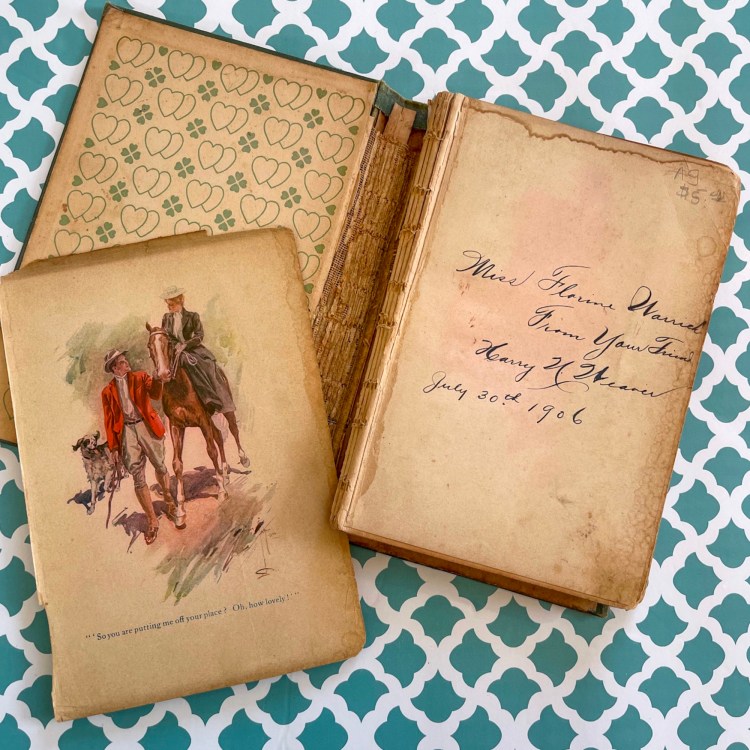 "'So you are putting me off your place? Oh, how lovely!'"
A-9
$5.
Miss Florine Warrick
From Your Friend
Harry N Weaver
July 30th 1906